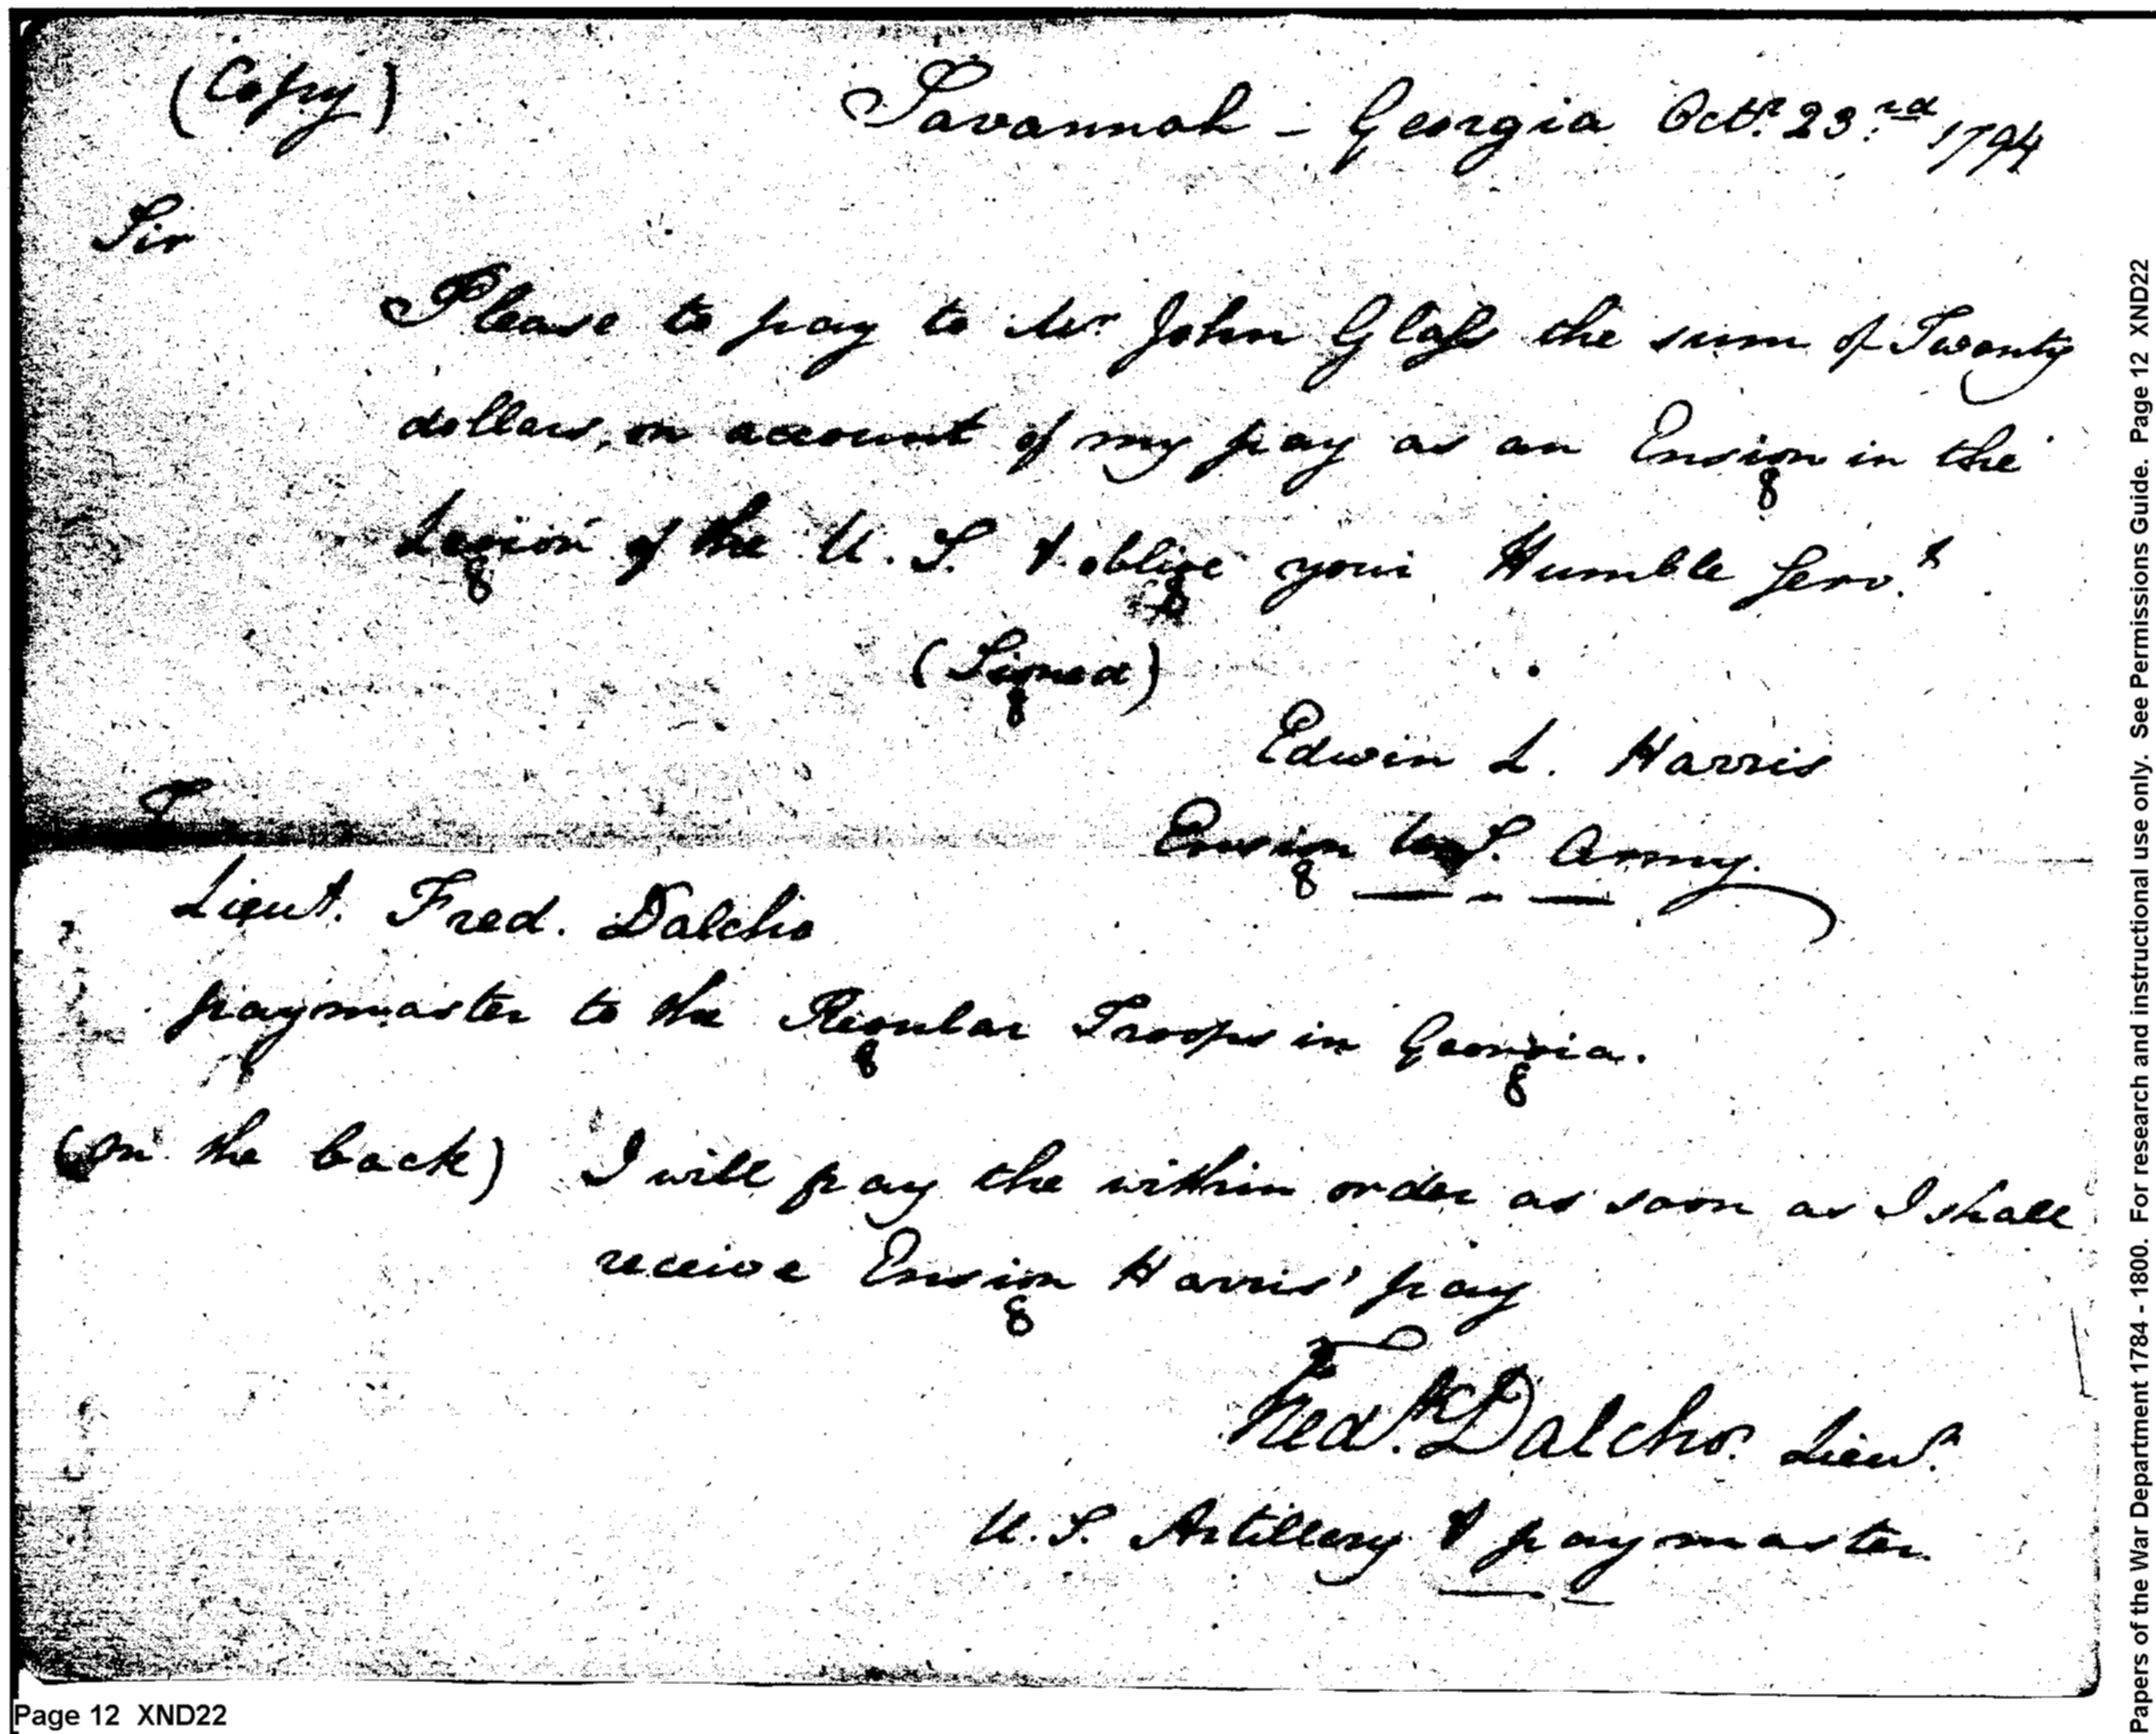 (Copy)
Savannah - Georgia Octr. 23rd. 1794
Sir
Please to pay to Mr John Glass the sum of Twenty
dollars, on account of my pay as an Ensign in the
Legion of the U. S. & oblige your Humble Servt.
(Signed)
Edwin L. Harris
Ensign U. S. Army.
To
Lieut. Fred. Dalcho
paymaster to the Regular Troops in Georgia.
(on the back) I will pay the within order as soon as I shall
receive Ensign Harris' pay
Fredk. Dalcho. Lieut.
U. S. Artillery & paymaster
Page 12 XND22
Papers of the War Department 1784 - 1800. For research and instructional use only. See Permissions Guide. Page 12 XND22